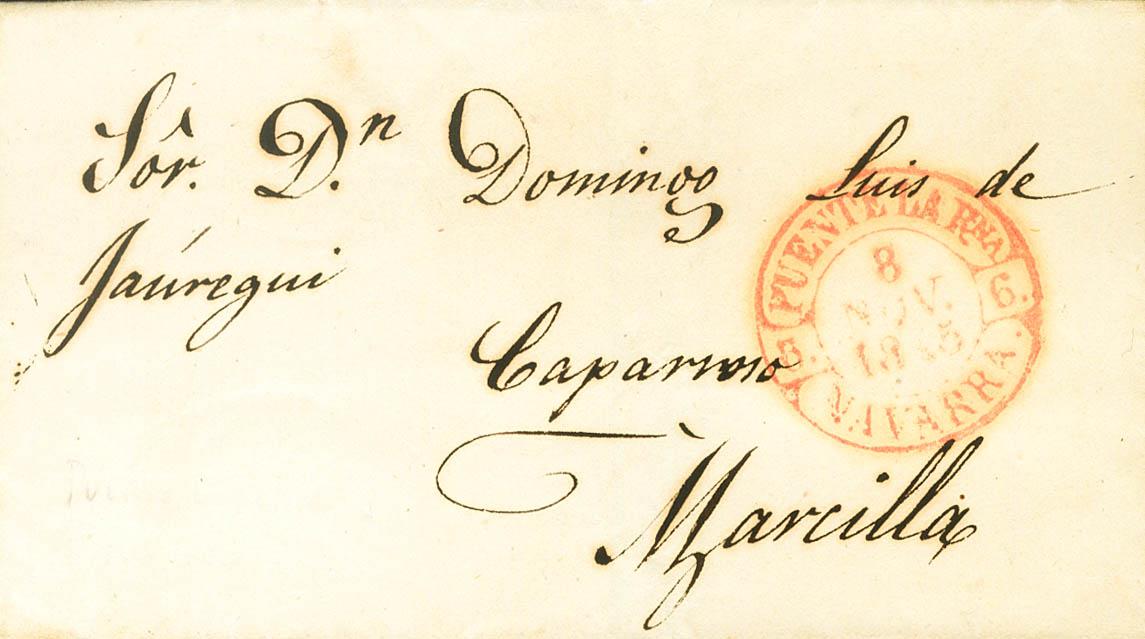 Sôr. D.n Domingo Luis de
Jaúregui
Caparroso
Marcilla
PUENTE LA RNA
6.
8
NOV.
6.
NAVARRA.